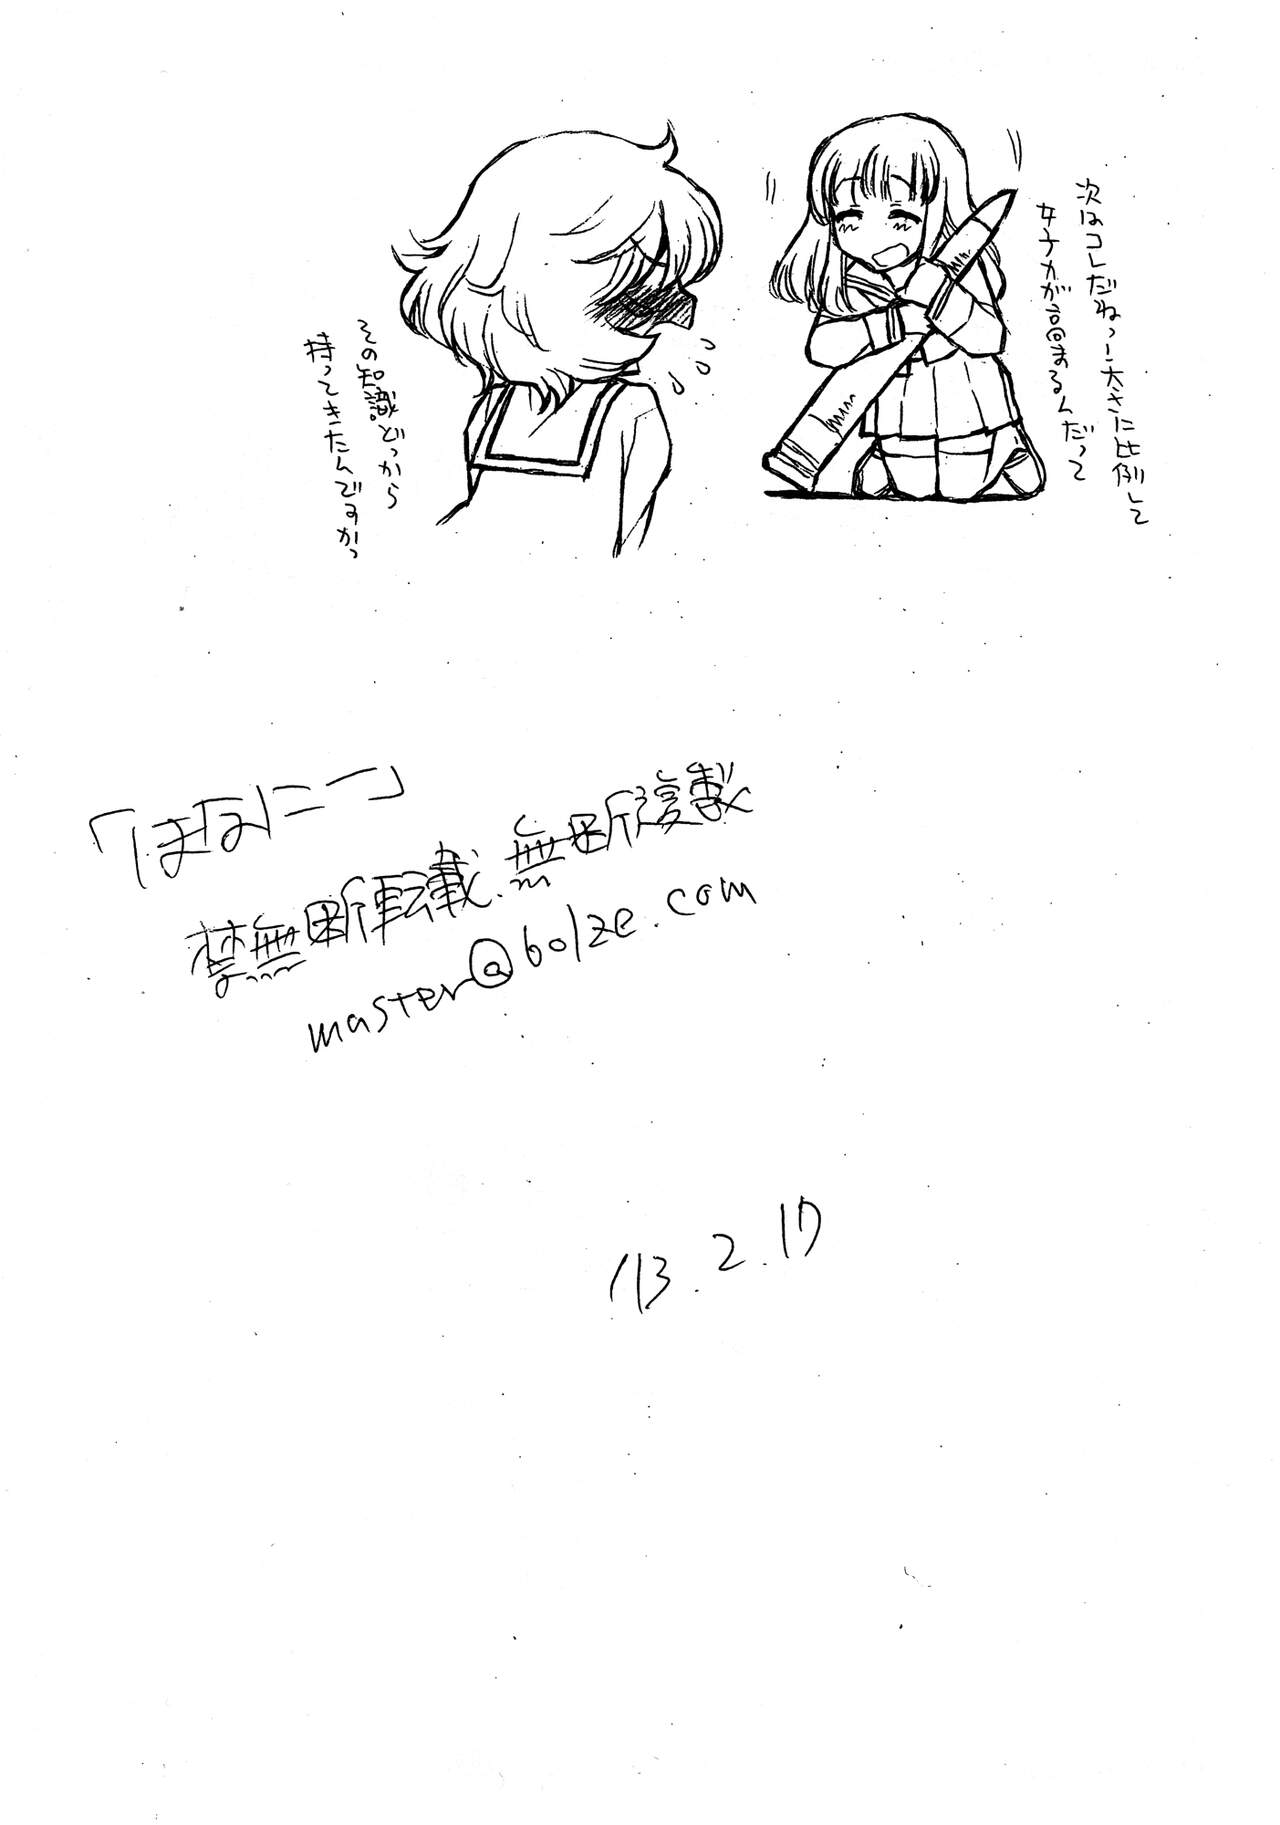 次はコレだねっ!大きさに比例して
女子力が高まるんだって
その知識どっから
持ってきたんですかっ
「はなにー」
禁無断転載、無断複製
master@bolze.com
'13.2.17